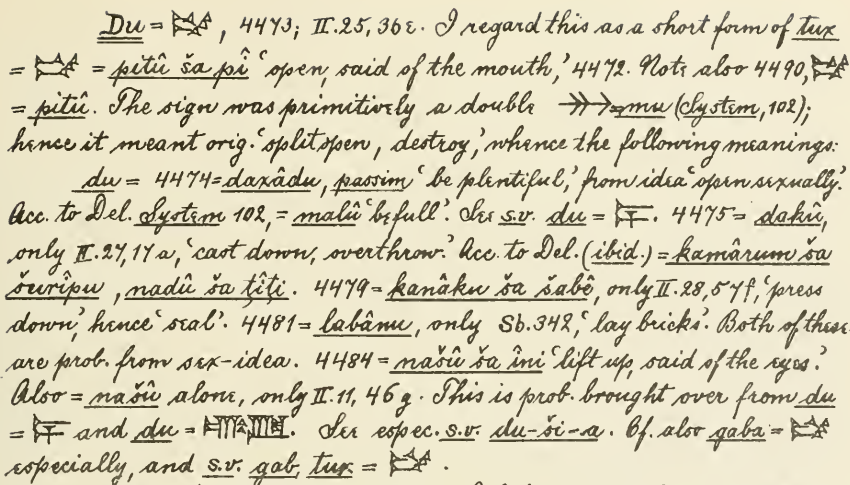 Du = , 4473; II. 25, 36 ε. I regard this as a short form of tux
= = pitû ša pî 'open, said of the mouth,' 4472. Note also 4490,
= pitû. The sign was primitively a double = mu (System, 102);
hence it meant orig. 'split open, destroy,' whence the following meanings:
du = 4474 = daxâdu, passim 'be plentiful,' from idea 'open sexually.'
Acc. to Del. System 102, = malû 'be full'. See s.v. du = . 4475 = dakû,
only II. 27, 17 a, 'cast down, overthrow.' Acc. to Del. (ibid.) = kamârum ša
šurîpu, nadû ša ṭîṭi. 4479 = kanâku ša šabê, only II. 28, 57 f, 'press
down,' hence 'seal'. 4481 = labânu, only Sb. 342, 'lay bricks'. Both of these
are prob. from sex-idea. 4484 = našû ša îni 'lift up, said of the eyes.'
Also = našû alone, only II. 11, 46 g. This is prob. brought over from du
= and du = . See espec. s.v. du-ši-a. Cf. also gaba =
especially, and s.v. gab, tux = .